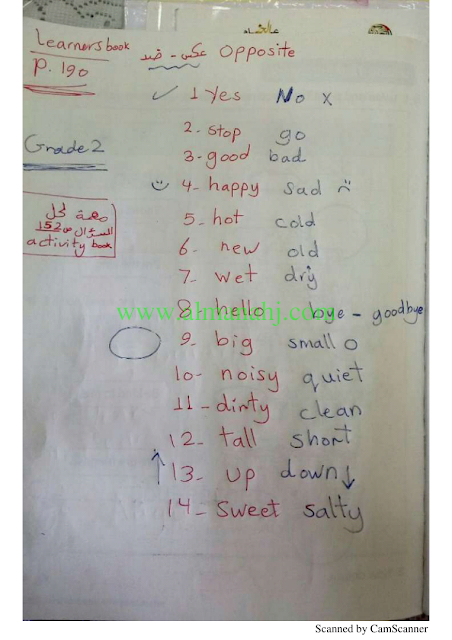 Learners book
P. 190
عكس - ضد Opposite
✓ 1 Yes No x
Grade 2
2- stop go
3- good bad
4- happy sad
5- hot cold
6- new old
7- wet dry
مهمة لحل
السؤال ص 152
activity book
www.almanahj.com
8- hello bye - goodbye
9- big small
10- noisy quiet
11- dirty clean
12- tall short
↑ 13- up down ↓
14- sweet salty
Scanned by CamScanner